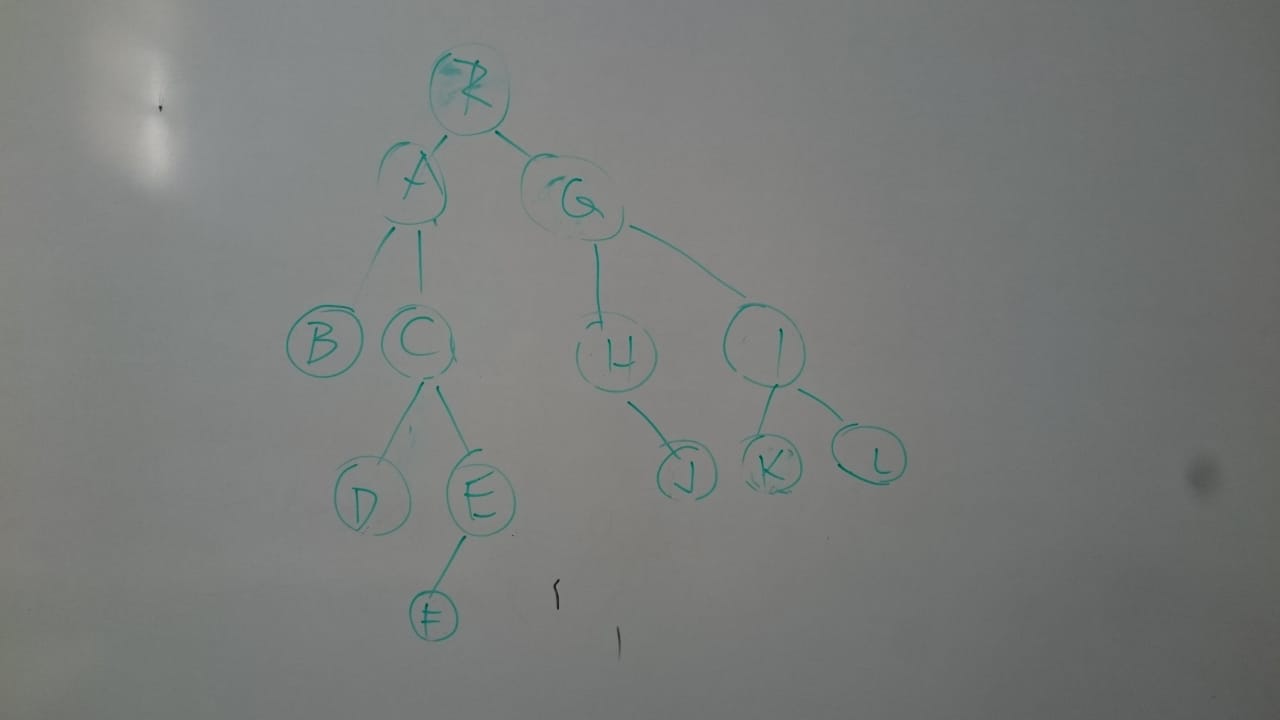 R
A G
B C H I
D E J K L
F